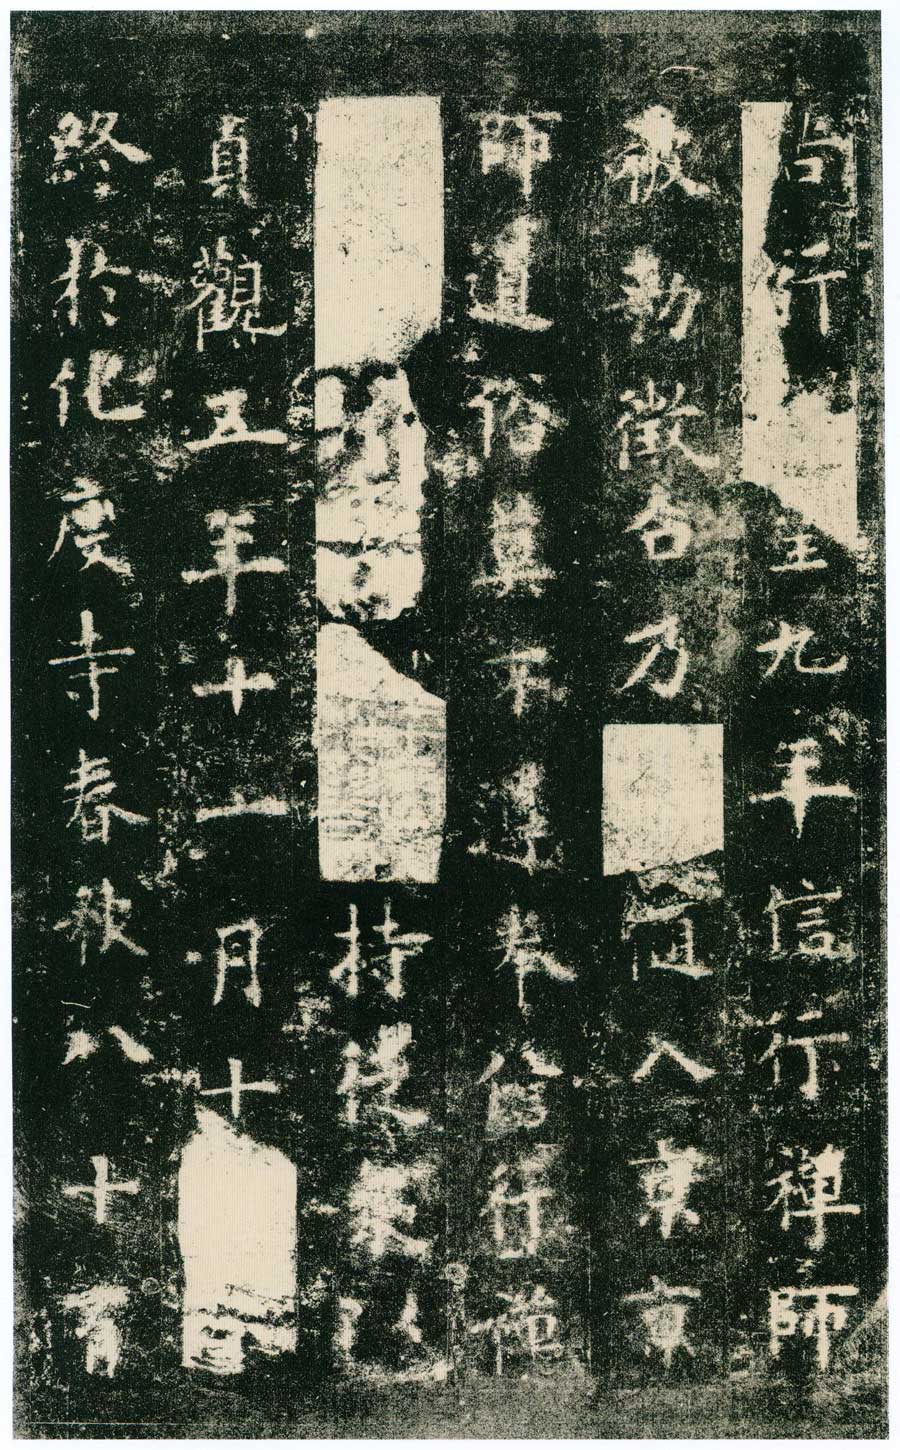 尚行 至九年信行禪師
被勑徵召乃 隨入京京
師道俗莫不遵奉信行禪
持徒衆以
貞觀五年十一月十
終於化度寺春秋八十有